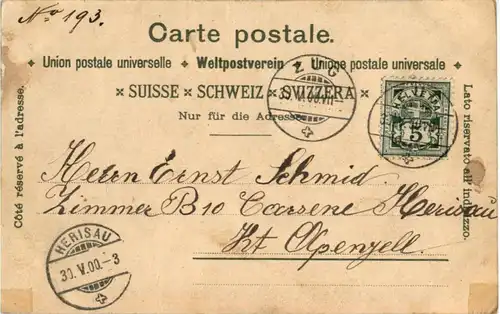 No 193.
Carte postale.
Union postale universelle Weltpostverein Unione postale universale
SUISSE SCHWEIZ SVIZZERA
Nur für die Adresse
Côté réservé à l'adresse.
Lato riservato all' indirizzo.
ZUG
30.V.00.VII-
5
Herrn Ernst Schmid.
Zimmer B 10 Caserne Herisau
Kt Apenzell.
HERISAU
30.V.00.-3